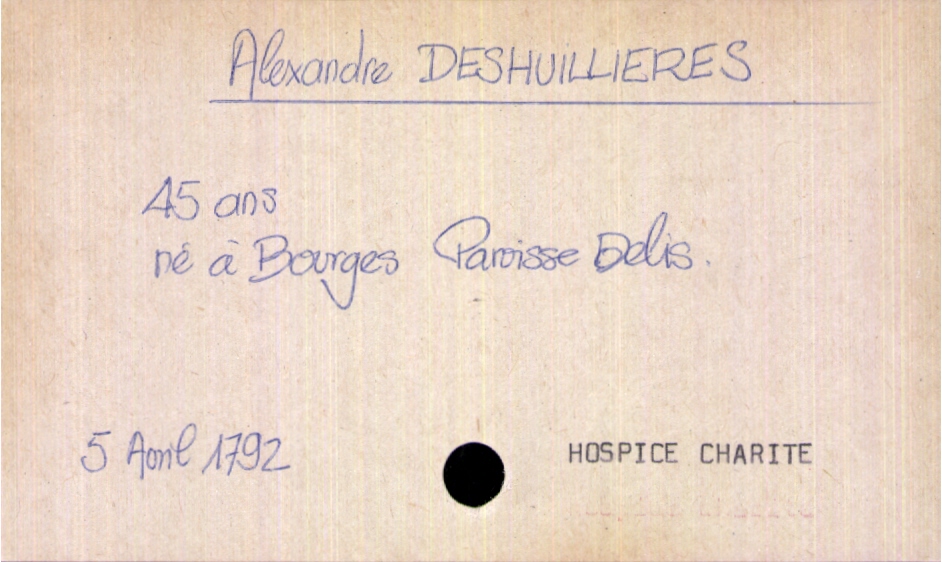 Alexandre DESHUILLIERES
45 ans
né à Bourges Paroisse Delis.
5 Avril 1792
HOSPICE CHARITE